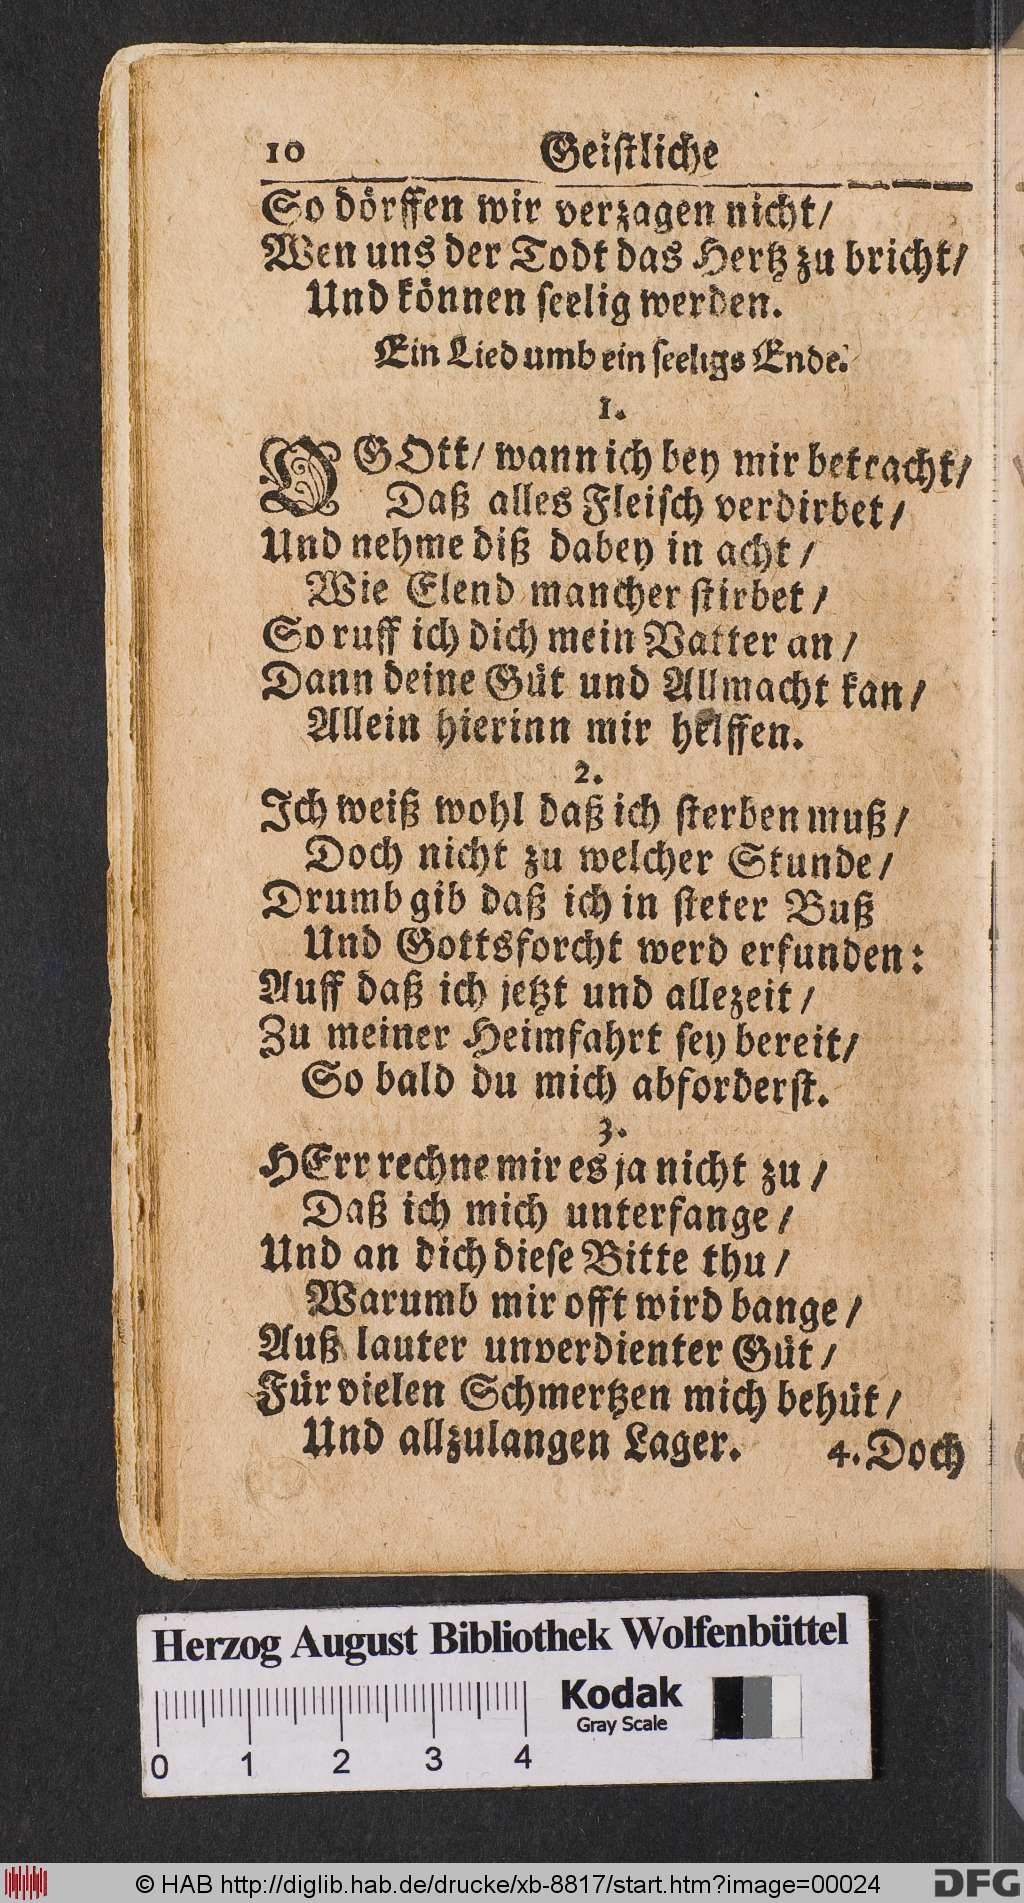 10 Geistliche
So dörffen wir verzagen nicht/
Wen uns der Todt das Hertz zu bricht/
Und können seelig werden.
Ein Lied umb ein seeligs Ende.
1.
O GOtt/ wann ich bey mir betracht/
Daß alles Fleisch verdirbet/
Und nehme diß dabey in acht/
Wie Elend mancher stirbet/
So ruff ich dich mein Vatter an/
Dann deine Güt und Allmacht kan/
Allein hierinn mir helffen.
2.
Ich weiß wohl daß ich sterben muß/
Doch nicht zu welcher Stunde/
Drumb gib daß ich in steter Buß
Und Gottsforcht werd erfunden:
Auff daß ich jetzt und allezeit/
Zu meiner Heimfahrt sey bereit/
So bald du mich abforderst.
3.
HErr rechne mir es ja nicht zu/
Daß ich mich unterfange/
Und an dich diese Bitte thu/
Warumb mir offt wird bange/
Auß lauter unverdienter Güt/
Für vielen Schmertzen mich behüt/
Und allzulangen Lager.
4. Doch
Herzog August Bibliothek Wolfenbüttel
Kodak
Gray Scale
0 1 2 3 4
© HAB http://diglib.hab.de/drucke/xb-8817/start.htm?image=00024
DFG